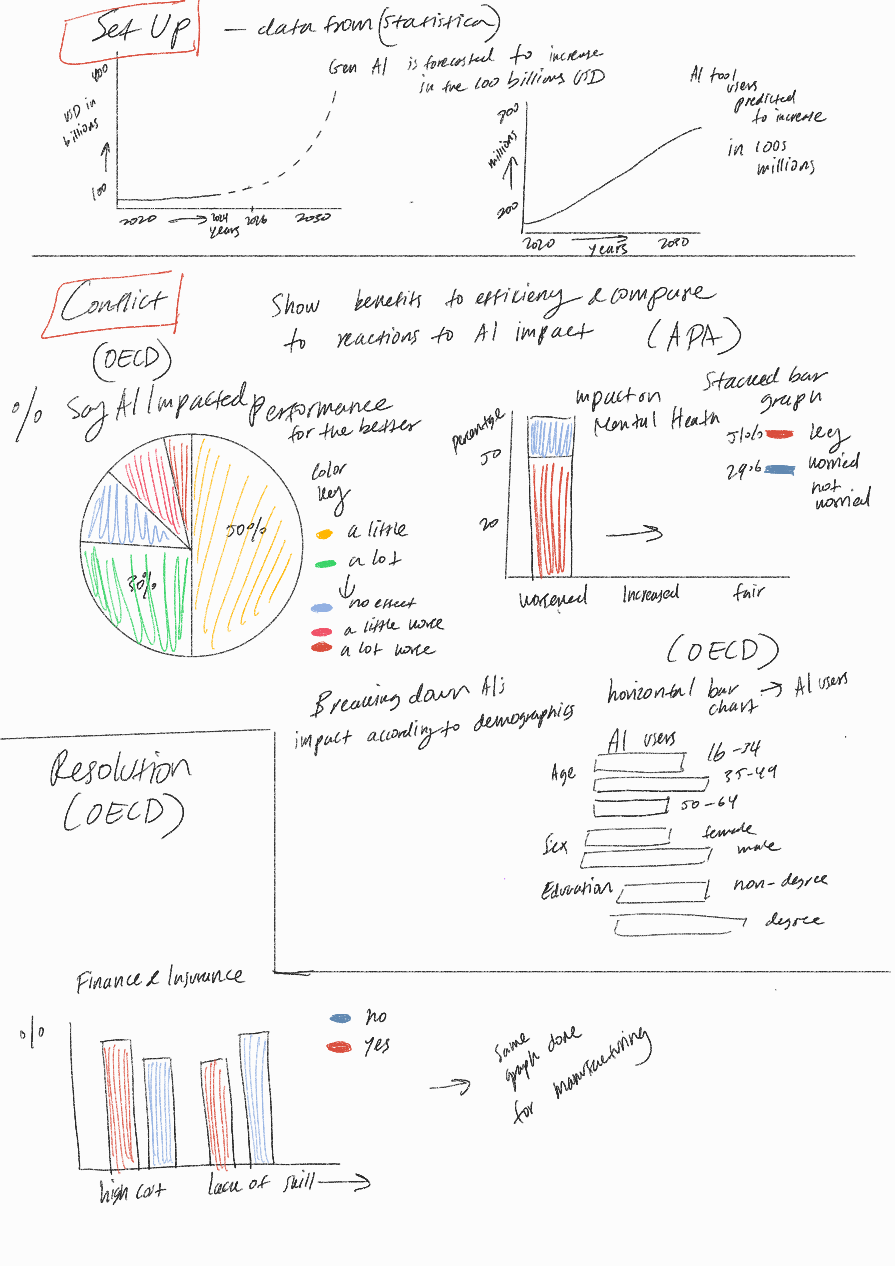 Set Up — data from (Statistica)
Gen AI is forecasted to increase
in the 100 billions USD
400
USD in
billions
100
2020 → 2024 2026 2030
years
AI tool
users
predicted
to increase
in 100s
millions
700
millions
200
2020 2030
years
Conflict
(OECD)
Show benefits to efficieny & compare
to reactions to AI impact (APA)
% Say AI Impacted performance
for the better
50%
30%
Color
key
a little
a lot
no effect
a little worse
a lot worse
percentage
50
20
Impact on
Mental Heath
worsened Increased fair
Stacked bar
graph
key
51%
worried
29%
not
worried
Breaking down AI's
impact according to demographics
(OECD)
horizontal bar
chart → AI users
AI users
Age
16-34
35-49
50-64
Sex
female
male
Education
non-degree
degree
Resolution
(OECD)
Finance & Insurance
%
no
yes
high cost lack of skill →
→ Same
graph done
for manufacturing